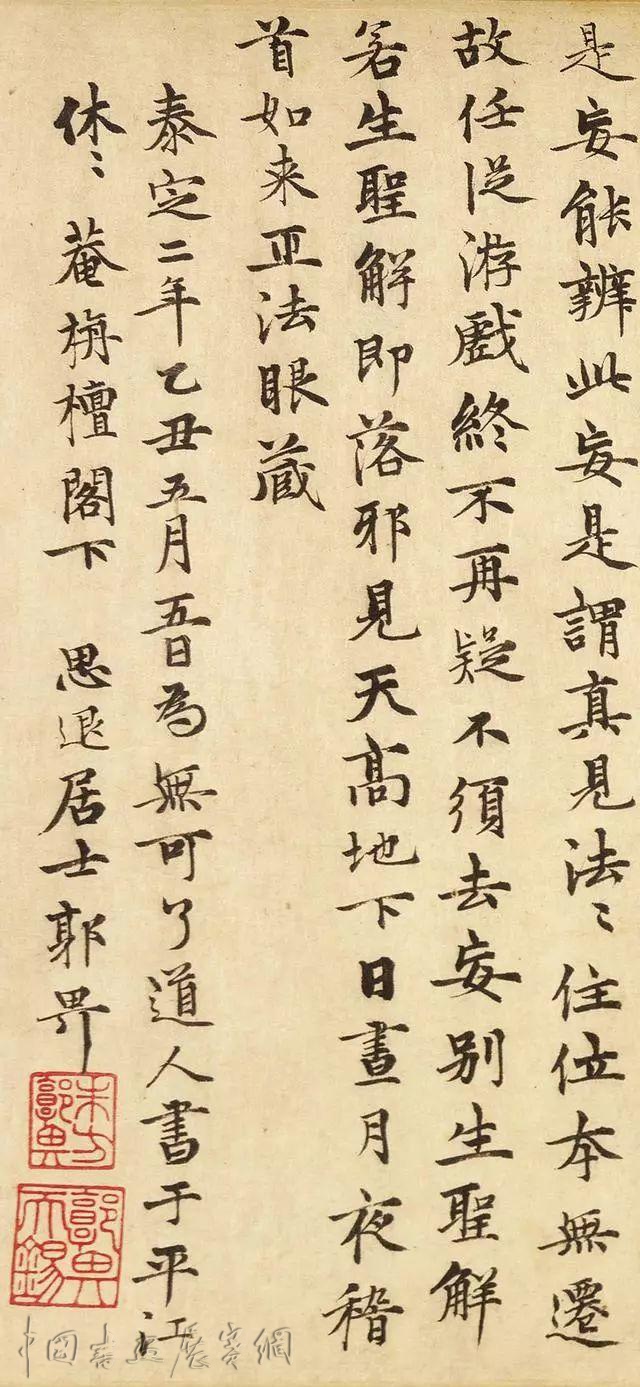 是妄能辨此妄是謂真見法〻住位本無遷
故任從游戲終不再疑不須去妄別生聖解
若生聖解即落邪見天高地下日晝月夜稽
首如來正法眼藏
泰定二年乙丑五月五日為無可了道人書于平江
休〻菴栴檀閣下 思退居士郭畀
郭畀
郭畀天錫
中國書畫展賽網